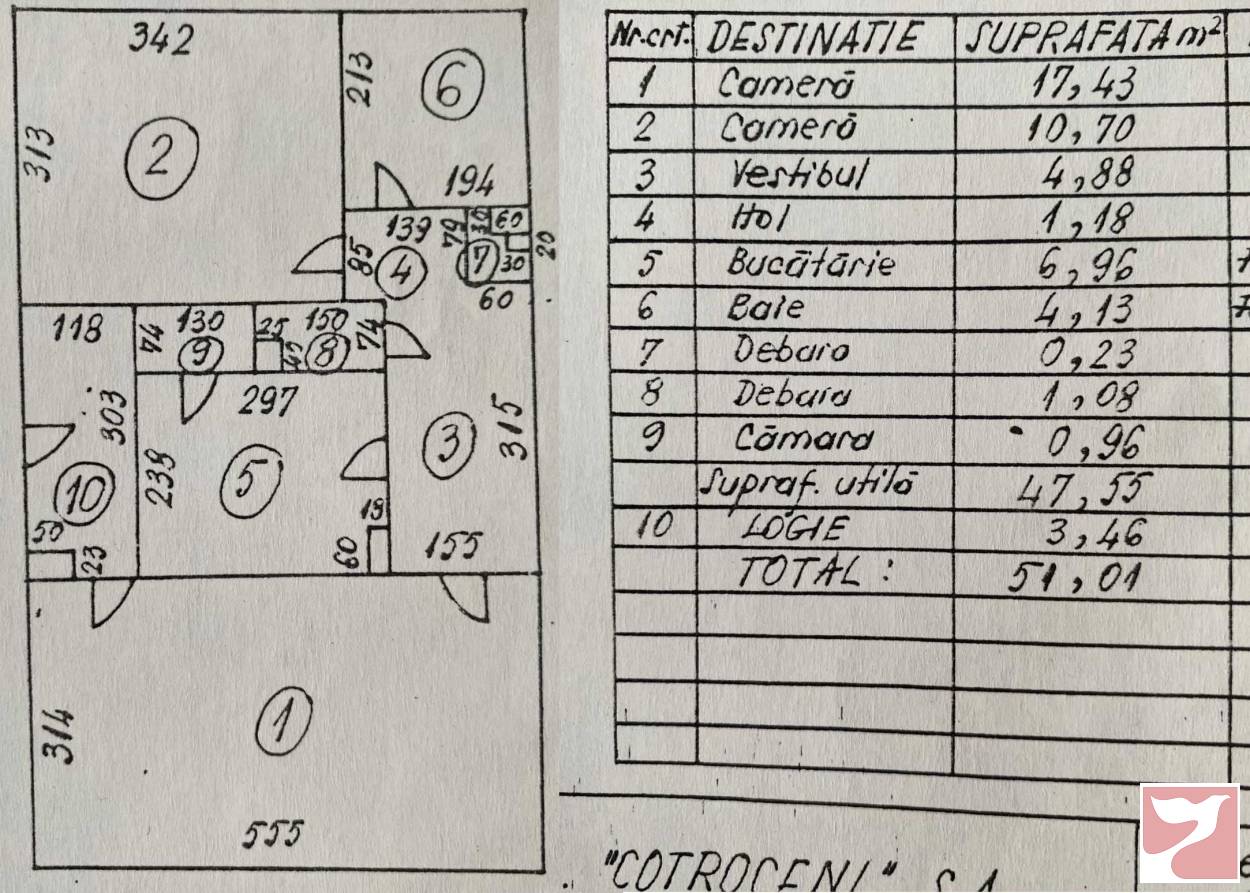 342
213
6
313
2
194
139
79
30
60
20
85
4
7
30
60
118
74
130
9
25
150
8
74
303
297
3
315
10
239
5
50
23
19
60
155
314
1
555
Nr.crt. DESTINATIE SUPRAFATA m²
1 Cameră 17,43
2 Cameră 10,70
3 Vestibul 4,88
4 Hol 1,18
5 Bucătărie 6,96
6 Baie 4,13
7 Debara 0,23
8 Debara 1,08
9 Cămara 0,96
Supraf. utilă 47,55
10 LOGIE 3,46
TOTAL : 51,01
"COTROCENI" S.A.